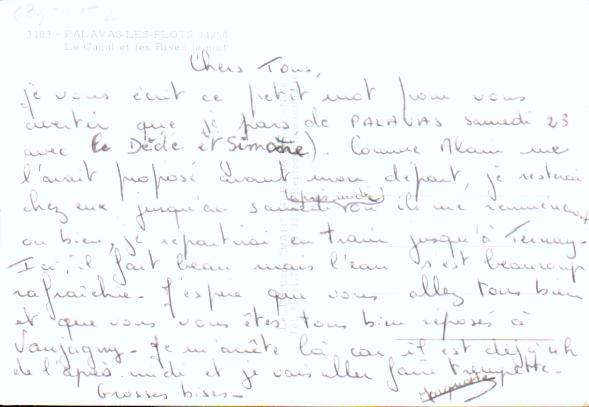 3183 - PALAVAS-LES-FLOTS 34250
Le Canal et les Rives la nuit
Chers Tous,
je vous écrit ce petit mot pour vous
avertir que je pars de PALAVAS samedi 23
avec le Dédé et Simone). Comme Alain me
l'avait proposé avant mon départ, je resterai
(après-midi)
chez eux jusqu'au samedi où ils me ramèneront
ou bien, je repartirai en train jusqu'à Ternay.
Ici, il fait beau mais l'eau s'est beaucoup
rafraîchie. J'espère que vous allez tous bien
et que vous vous êtes tous bien reposés à
Vaujugny. Je m'arrête là car il est déjà 4h
de l'après-midi et je vais aller faire trempette.
Grosses bises.